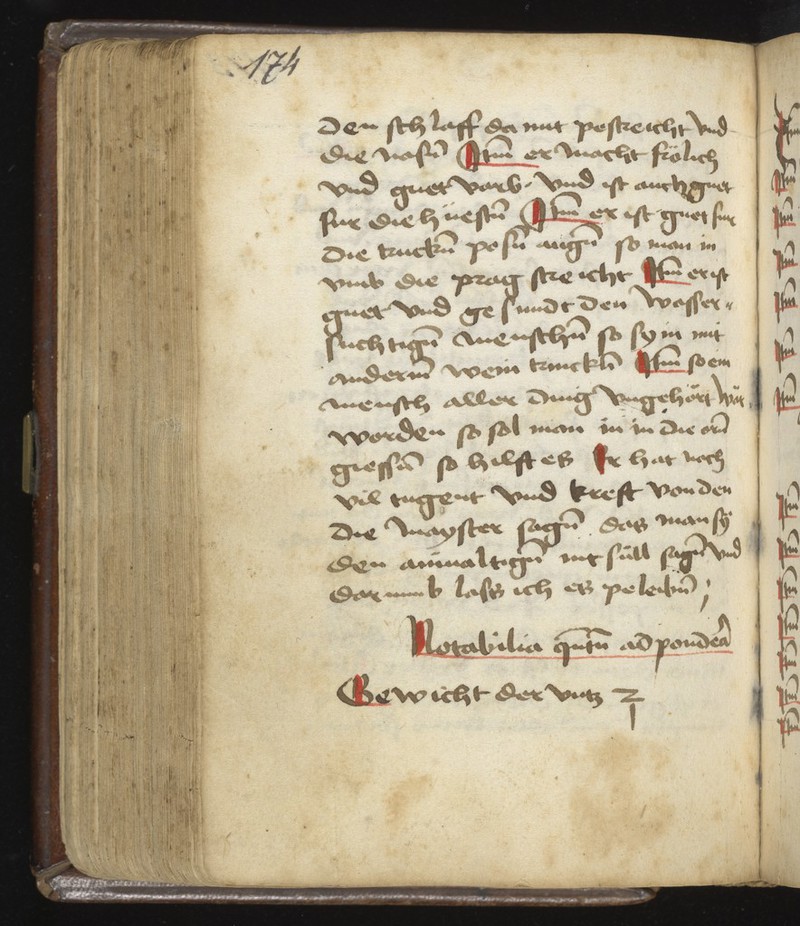 174
den schlaff da mit pestreicht vnd
die nasn̄ Itm̄ er macht frölich
vnd guet varb. vnd ist auch guet
fur die hüestn̄ Itm̄ er ist guet fur
die truckn̄ posn̄ augn̄ so man in
vmb die prag streicht Itm̄ er ist
guet vnd gesundt den wasser-
suchtign̄ menschn̄ so sy in mit
anderm̄ wein trinckn̄ Itm̄ so ein
mensch aller ding vngehört wär
worden so sol man in in die orn̄
giessn̄ so hilft es Er hat noch
vil tugent vnd kreft von den
die mayster sagn̄ das man sÿ
den ainualtign̄ nit süll sagn̄ vnd
darumb lass ich es peleibn̄ ;
Notabilia qn̄tn̄ ad pondera
Gewicht der vntz